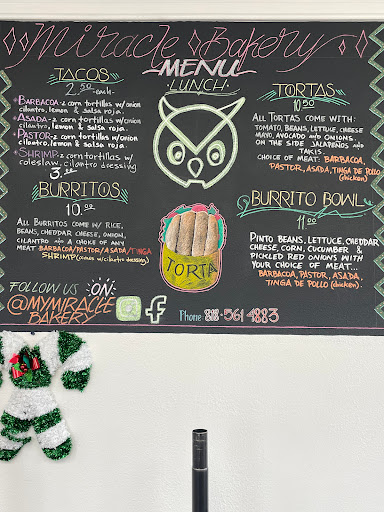 Miracle Bakery
MENU
LUNCH
TACOS
2.50 each
•BARBACOA-2 corn tortillas w/onion
cilantro, lemon & salsa roja.
•ASADA-2 corn tortillas w/onion
cilantro, lemon & salsa roja.
•PASTOR-2 corn tortillas w/onion
cilantro, lemon & salsa roja.
•SHRIMP-2 corn tortillas w/
coleslaw, cilantro dressing
3.
BURRITOS
10.00
ALL BURRITOS COME W/ RICE,
BEANS, CHEDDAR CHEESE, ONION,
CILANTRO AND A CHOICE OF ANY
MEAT. BARBACOA/PASTOR/ASADA/TINGA
SHRIMP (comes w/cilantro dressing)
FOLLOW US :ON:
@MYMIRACLE
BAKERY
TORTA
TORTAS
10.50
ALL TORTAS COME WITH:
TOMATO, BEANS, LETTUCE, CHEESE
MAYO, AVOCADO AND ONIONS.
ON THE SIDE JALAPEÑOS AND
TAKIS.
CHOICE OF MEAT: BARBACOA,
PASTOR, ASADA, TINGA DE POLLO
(chicken)
BURRITO BOWL
11.00
PINTO BEANS, LETTUCE, CHEDDAR
CHEESE, CORN, CUCUMBER &
PICKLED RED ONIONS WITH
YOUR CHOICE OF MEAT...
BARBACOA, PASTOR, ASADA,
TINGA DE POLLO (chicken).
Phone: 818-561 4883